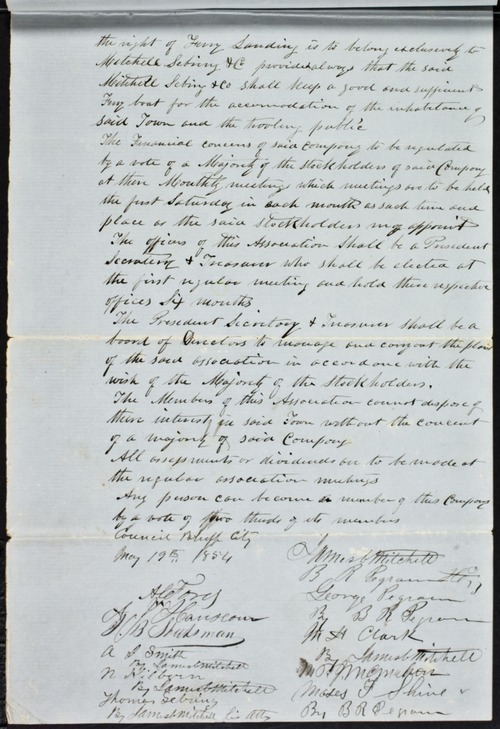 the right of Ferry Landing is to belong exclusively to
Mitchell Sebring & C provided always that the said
Mitchell Sebring & Co shall keep a good and sufficient
Ferry boat for the accommodation of the inhabitance of
said Town and the traveling public
The Financial concerns of said company to be regulated
by a vote of a Majority of the stockholders of said Company
at there Monthly meetings which meetings are to be held
the first Saturday in each month at such time and
place as the said stockholders may appoint
The officers of this Association Shall be a President
Secretary & Treasurer who shall be elected at
the first regular meeting and hold there respective
offices Six months
The President Secretary & Treasurer shall be a
board of Directors to manage and carry out the plans
of the said association in accordance with the
wish of the Majority of the Stockholders.
The Members of this Association cannot dispose of
there interest in said Town without the concent
of a majority of said Company
All assessments or dividends are to be made at
the regular association meetings
Any person can become a member of this Company
by a vote of two thirds of its members
Council Bluff City
May 19th 1854
James C Mitchell
B R Pegram
George Pegram
By B R Pegram
M H Clark
By James C Mitchell
Moses F Shinn
By B R Pegram
P Hanscom
A S Smith
By James C Mitchell
N Kilborn
By James C Mitchell
Thomas Sebring
By James C Mitchell his Atty